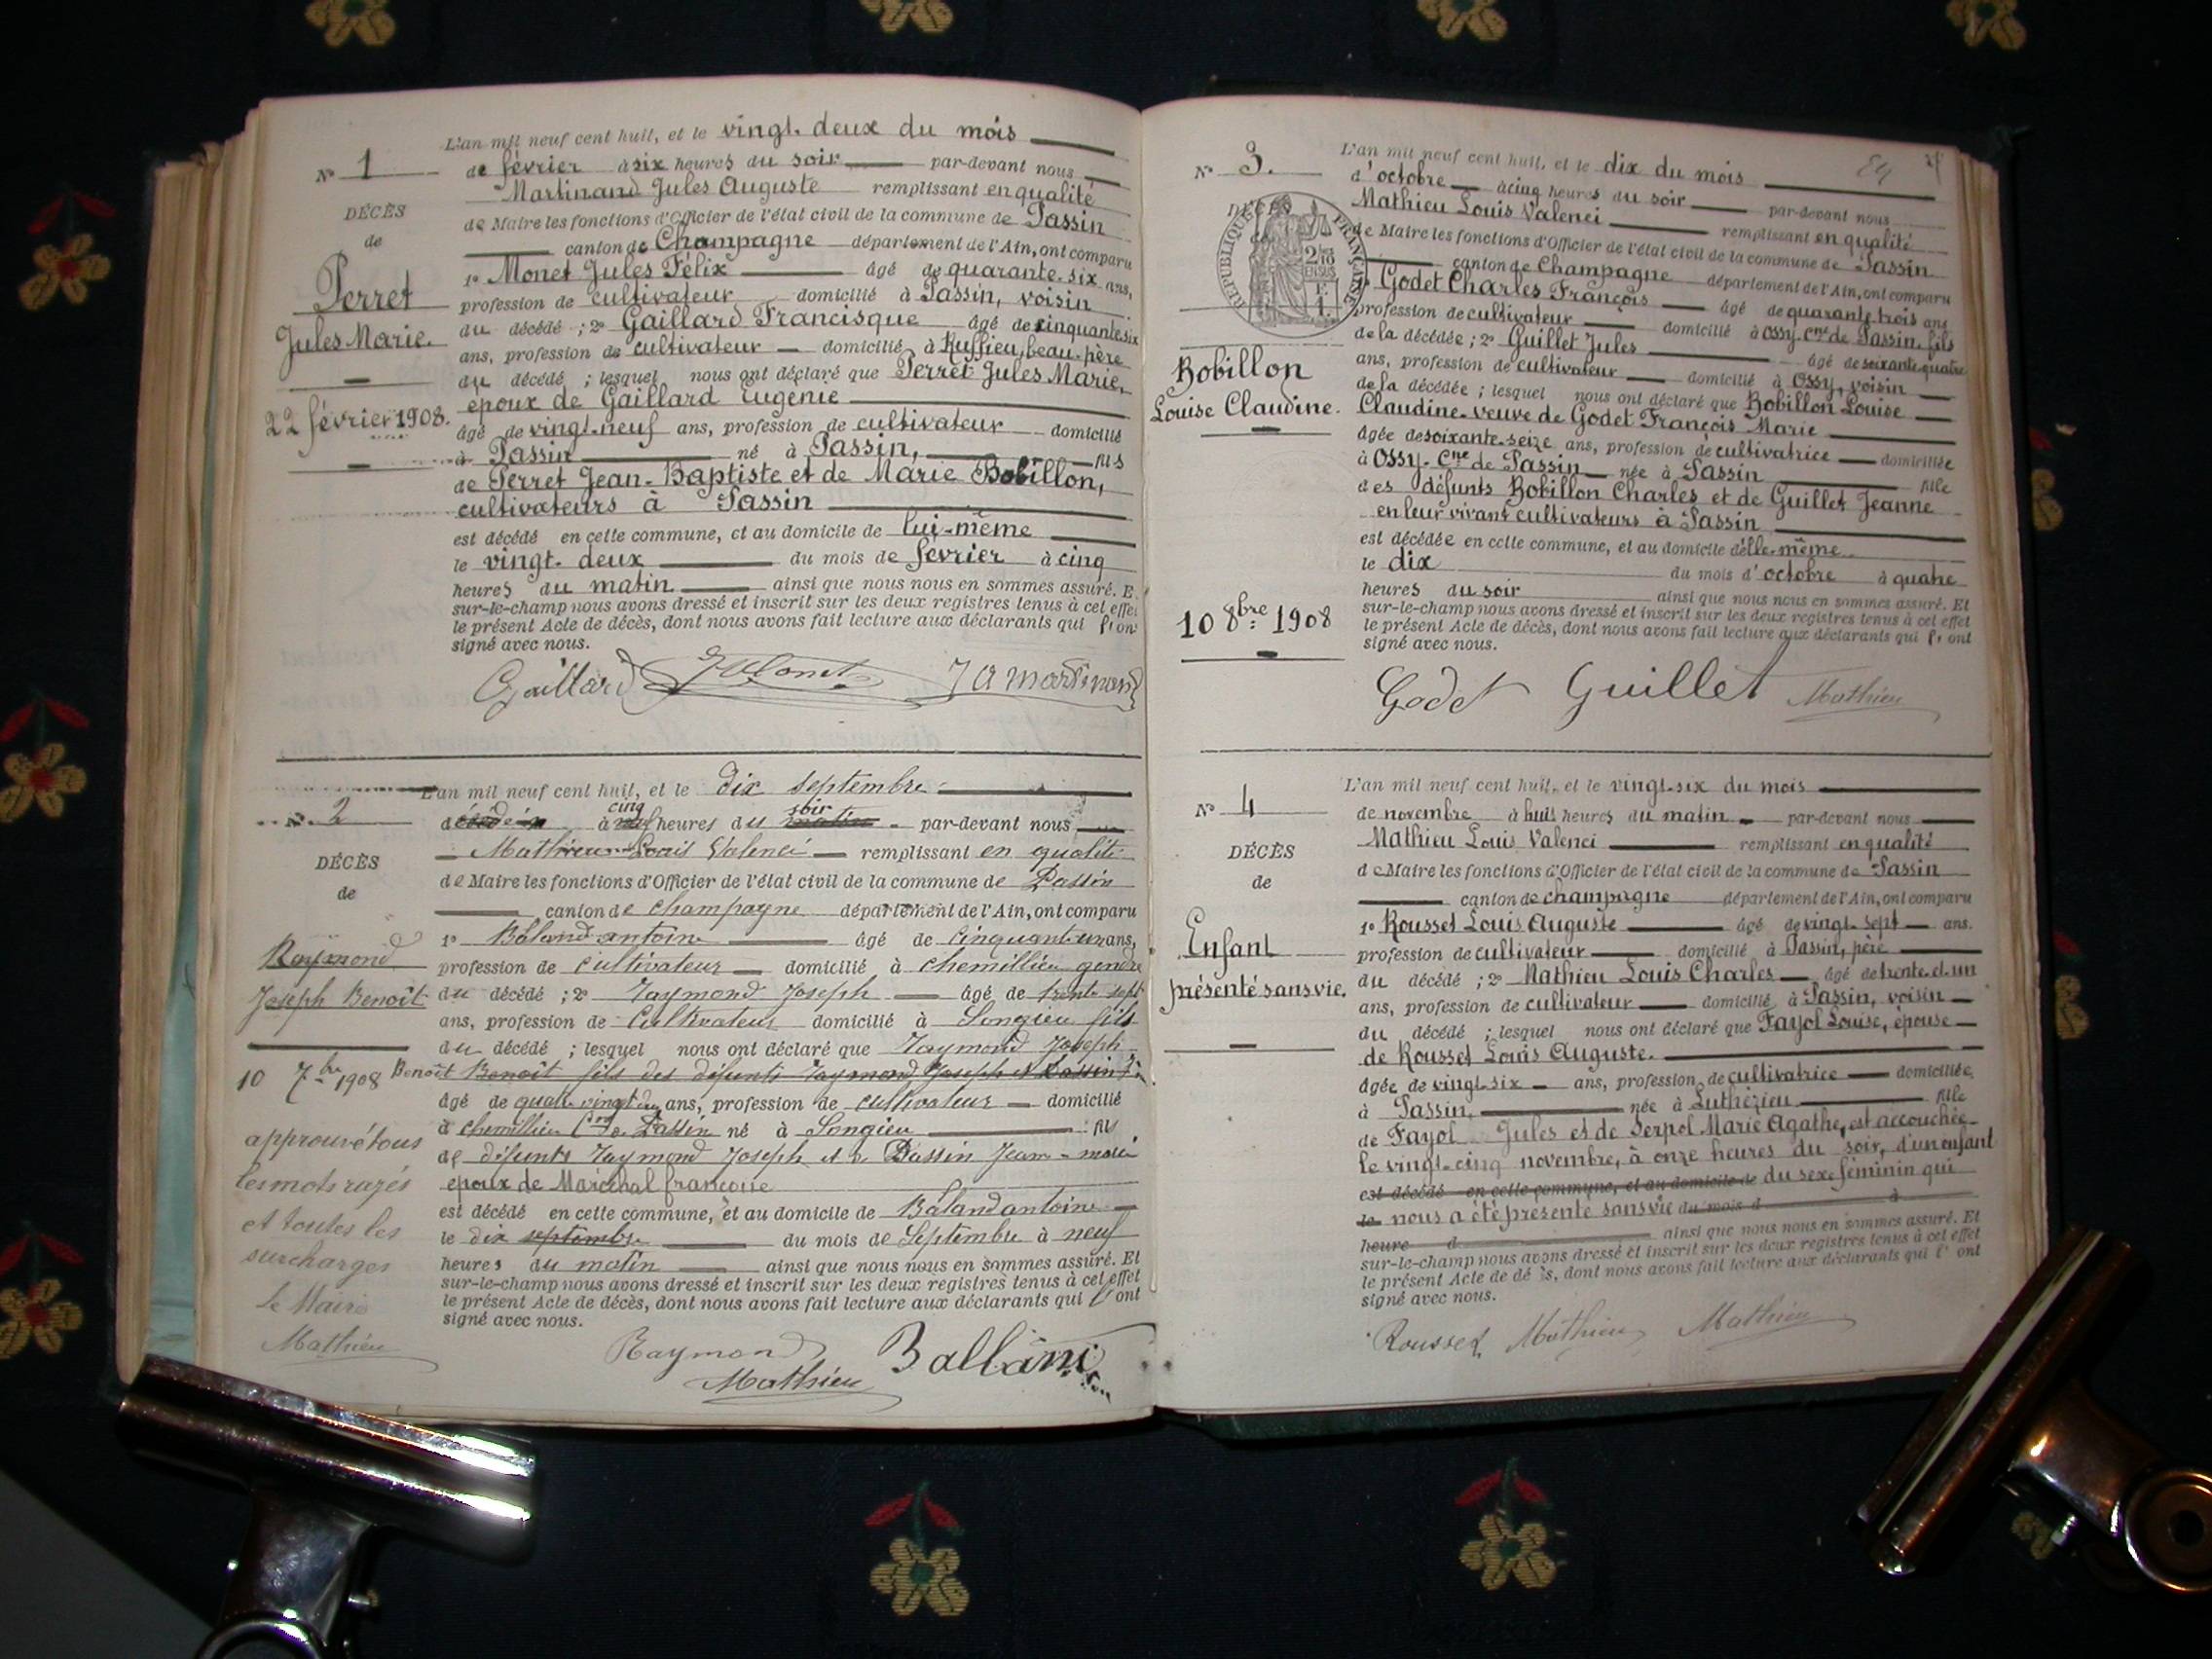 L'an mil neuf cent huit, et le vingt-deux du mois
N° 1
de février à six heures du soir par-devant nous
Martinand Jules Auguste remplissant en qualité
DÉCÈS
de Maire les fonctions d'Officier de l'état civil de la commune de Passin
de
canton de Champagne département de l'Ain, ont comparu
1° Monet Jules Félix âgé de quarante-six ans,
Perret
profession de cultivateur domicilié à Passin, voisin
Jules Marie.
du décédé ; 2° Gaillard Francisque âgé de cinquante six
ans, profession de cultivateur domicilié à Ruffieu, beau-père
du décédé ; lesquel nous ont déclaré que Perret Jules Marie,
22 février 1908.
époux de Gaillard Eugénie
âgé de vingt-neuf ans, profession de cultivateur domicilié
à Passin né à Passin, fils
de Perret Jean-Baptiste et de Marie Bobillon,
cultivateurs à Passin
est décédé en cette commune, et au domicile de lui-même
le vingt-deux du mois de février à cinq
heures du matin ainsi que nous nous en sommes assuré. E
sur-le-champ nous avons dressé et inscrit sur les deux registres tenus à cet effet
le présent Acte de décès, dont nous avons fait lecture aux déclarants qui l'on
signé avec nous.
Gaillard JMonet JAMartinand
L'an mil neuf cent huit, et le dix septembre
N° 2
à cinq heures du matin soir par-devant nous
Mathieu Louis Valenci remplissant en qualité
DÉCÈS
de Maire les fonctions d'Officier de l'état civil de la commune de Passin
de
canton de Champagne département de l'Ain, ont comparu
1° Baland antoine âgé de cinquant un ans,
Raymond
profession de cultivateur domicilié à chemillieu gendre
Joseph Benoît
du décédé ; 2° Raymond Joseph âgé de trente sept
ans, profession de Cultivateur domicilié à Songieu fils
du décédé ; lesquel nous ont déclaré que Raymond Joseph
10 7bre 1908
Benoît Benoît fils des défunts Raymond Joseph et Passin
âgé de quatre vingt ans, profession de cultivateur domicilié
à chemillieu Cne de Passin né à Songieu fils
approuvé tous
de défunts Raymond Joseph et de Passin Jeanne-marie
les mots rayés
époux de Maréchal francoise
et toutes les
est décédé en cette commune, et au domicile de Baland antoine
surcharges
le dix septembre du mois de Septembre à neuf
heures du matin ainsi que nous nous en sommes assuré. Et
sur-le-champ nous avons dressé et inscrit sur les deux registres tenus à cet effet
Le Maire
le présent Acte de décès, dont nous avons fait lecture aux déclarants qui l'ont
signé avec nous.
Mathieu
Raymond Balland
Mathieu
L'an mil neuf cent huit, et le dix du mois
84
N° 3.
d'octobre à cinq heures du soir par-devant nous
Mathieu Louis Valenci remplissant en qualité
DÉCÈS
de Maire les fonctions d'Officier de l'état civil de la commune de Passin
RÉPUBLIQUE FRANÇAISE
canton de Champagne département de l'Ain, ont comparu
Godet Charles François âgé de quarante trois ans
profession de cultivateur domicilié à Ossy, Cne de Passin, fils
de la décédée ; 2° Guillet Jules âgé de soixante quatre
Bobillon
ans, profession de cultivateur domicilié à Ossy, voisin
Louise Claudine.
de la décédée ; lesquel nous ont déclaré que Bobillon Louise
Claudine-veuve de Godet François Marie
âgée de soixante-seize ans, profession de cultivatrice domiciliée
à Ossy-Cne de Passin née à Passin fille
des défunts Bobillon Charles et de Guillet Jeanne
en leur vivant cultivateurs à Passin
est décédée en cette commune, et au domicile d'elle-même
le dix du mois d'octobre à quatre
heures du soir ainsi que nous nous en sommes assuré. Et
sur-le-champ nous avons dressé et inscrit sur les deux registres tenus à cet effet
10 8bre 1908
le présent Acte de décès, dont nous avons fait lecture aux déclarants qui l'ont
signé avec nous.
Godet Guillet Mathieu
L'an mil neuf cent huit, et le vingt-six du mois
N° 4
de novembre à huit heures du matin par-devant nous
Mathieu Louis Valenci remplissant en qualité
DÉCÈS
de Maire les fonctions d'Officier de l'état civil de la commune de Passin
de
canton de champagne département de l'Ain, ont comparu
1° Rousset Louis Auguste âgé de vingt-sept ans.
Enfant
profession de cultivateur domicilié à Passin, père
présenté sans vie.
du décédé ; 2° Mathieu Louis Charles âgé de trente-et-un
ans, profession de cultivateur domicilié à Passin, voisin
du décédé ; lesquel nous ont déclaré que Fayol Louise, épouse
de Rousset Louis Auguste.
âgée de vingt-six ans, profession de cultivatrice domiciliée
à Passin, née à Luthézieu fille
de Fayol Jules et de Serpol Marie Agathe, est accouchée
le vingt-cinq novembre, à onze heures du soir, d'un enfant
est décédé en cette commune, et au domicile de du sexe féminin qui
le nous a été présenté sans vie du mois d à
heure d ainsi que nous nous en sommes assuré. Et
sur-le-champ nous avons dressé et inscrit sur les deux registres tenus à cet effet
le présent Acte de décès, dont nous avons fait lecture aux déclarants qui l'ont
signé avec nous.
Rousset Mathieu Mathieu